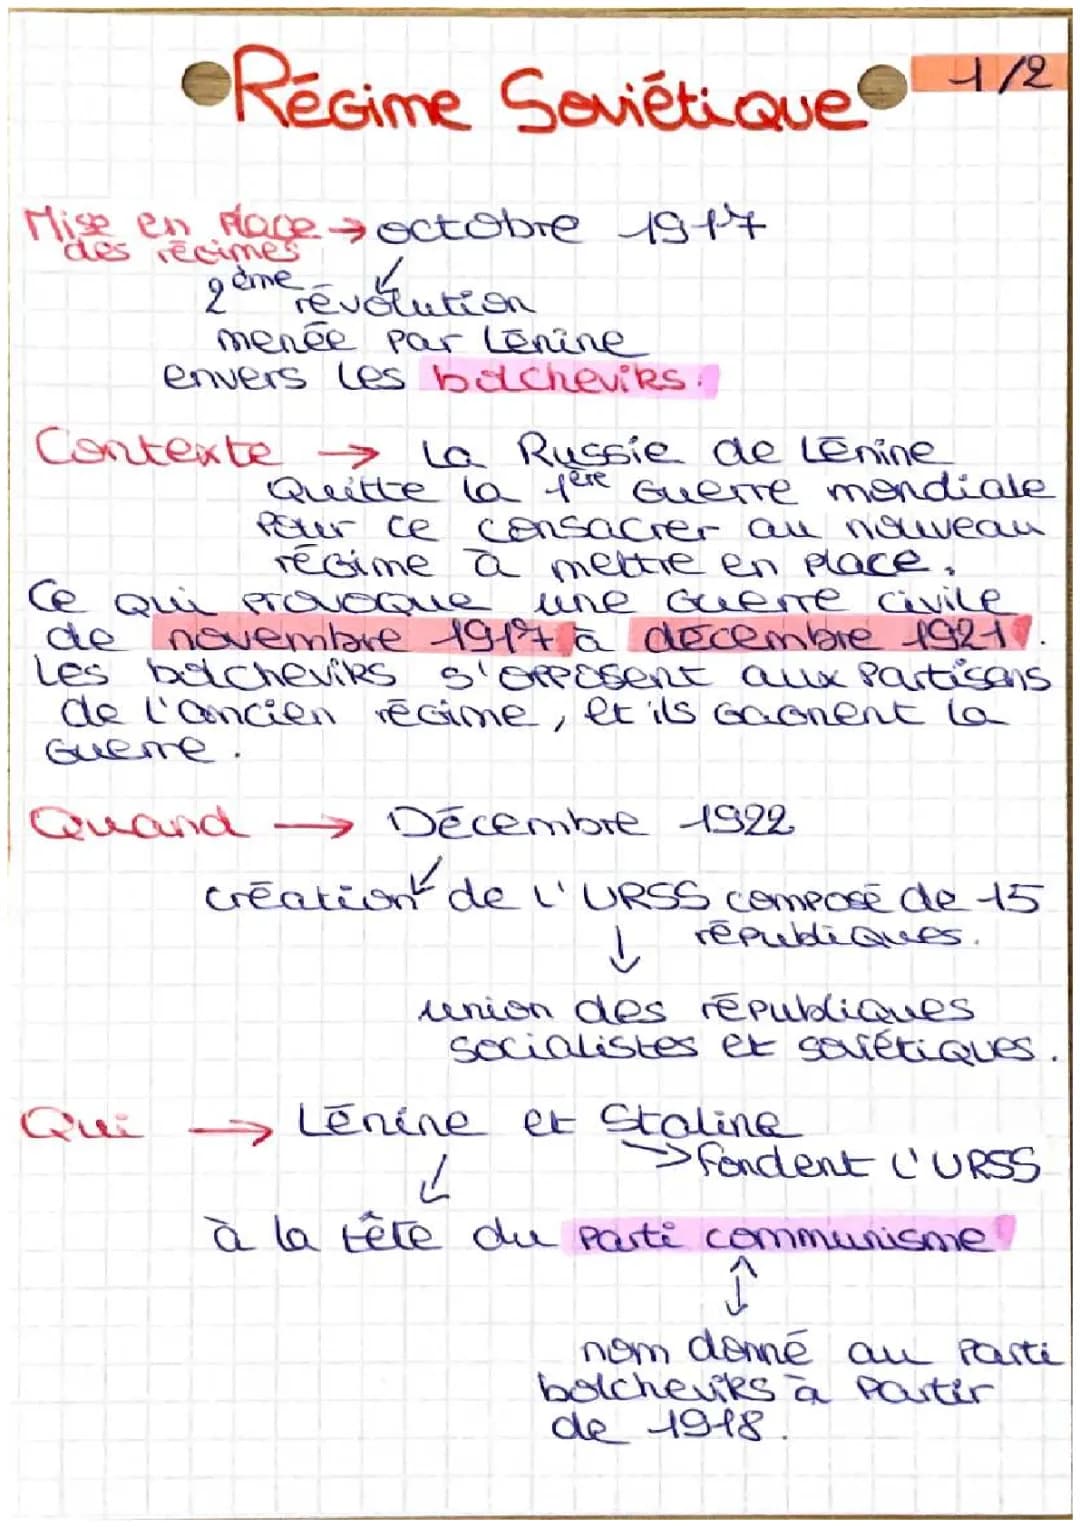 Régime Soviétique 1/2
Mise en place → octobre 1917
des régimes
2ème révolution
menée par Lénine
envers les bolcheviks.
Contexte → La Russie de Lénine
Quitte la 1ère Guerre mondiale
Pour ce consacrer au nouveau
régime à mettre en place.
Ce qui provoque une Guerre civile
de novembre 1917 à décembre 1921.
Les bolcheviks s'opposent aux Partisans
de l'ancien régime, et ils Gagnent la
Guerre.
Quand → Décembre 1922
création de l'URSS composé de 15
républiques.
union des républiques
socialistes et soviétiques.
Qui → Lénine et Staline
→ fondent l'URSS
à la tête du Parti communisme
nom donné au Parti
bolcheviks à Partir
de 1918.